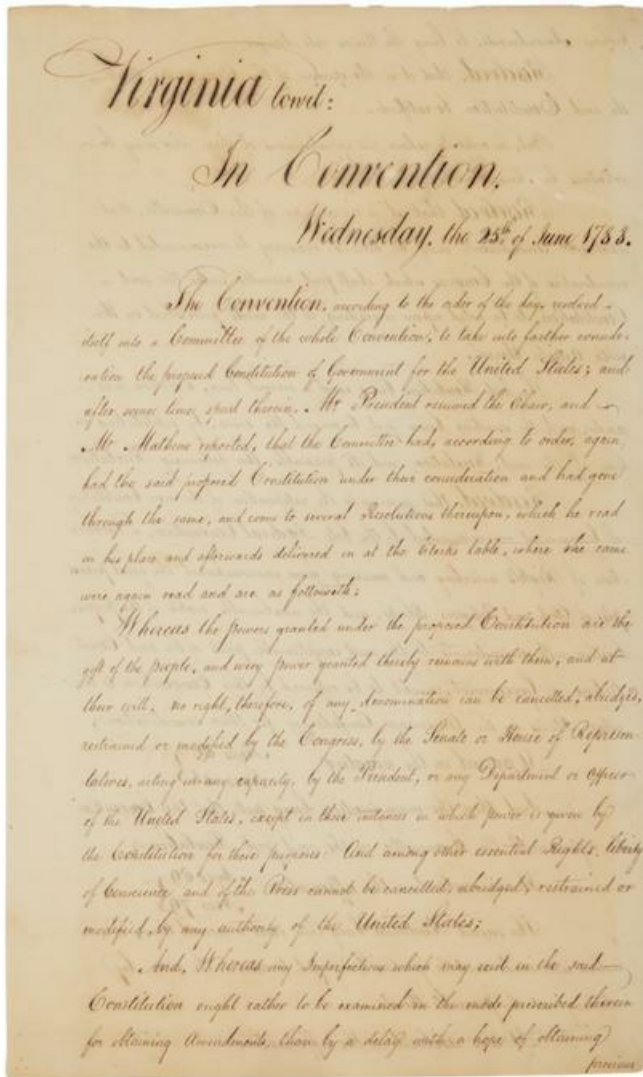 Virginia towit:
In Convention.
Wednesday, the 25th of June 1788.
The Convention, according to the order of the day, resolved
itself into a Committee of the whole Convention, to take into farther conside-
ration the proposed Constitution of Government for the United States; and
after some time spent therein, Mr President resumed the Chair, and
Mr Mathews reported, that the Committee had, according to order, again
had the said proposed Constitution under their consideration and had gone
through the same, and come to several Resolutions thereupon, which he read
in his place and afterwards delivered in at the Clerks table, where the same
were again read and are as followeth;
Whereas the powers granted under the proposed Constitution are the
gift of the people, and every power not granted thereby remains with them, and at
their will, no right, therefore, of any denomination can be cancelled, abridged,
restrained or modified by the Congress, by the Senate or House of Represen-
tatives, acting in any capacity, by the President, or any Department or Officer
of the United States, except in those instances in which power is given by
the Constitution for those purposes: And among other essential Rights, liberty
of Conscience and of the Press cannot be cancelled, abridged, restrained or
modified by any authority of the United States;
And, Whereas any Imperfections which may exist in the said
Constitution ought rather to be examined in the mode prescribed therein
for obtaining Amendments, than by a delay with a hope of obtaining
previous